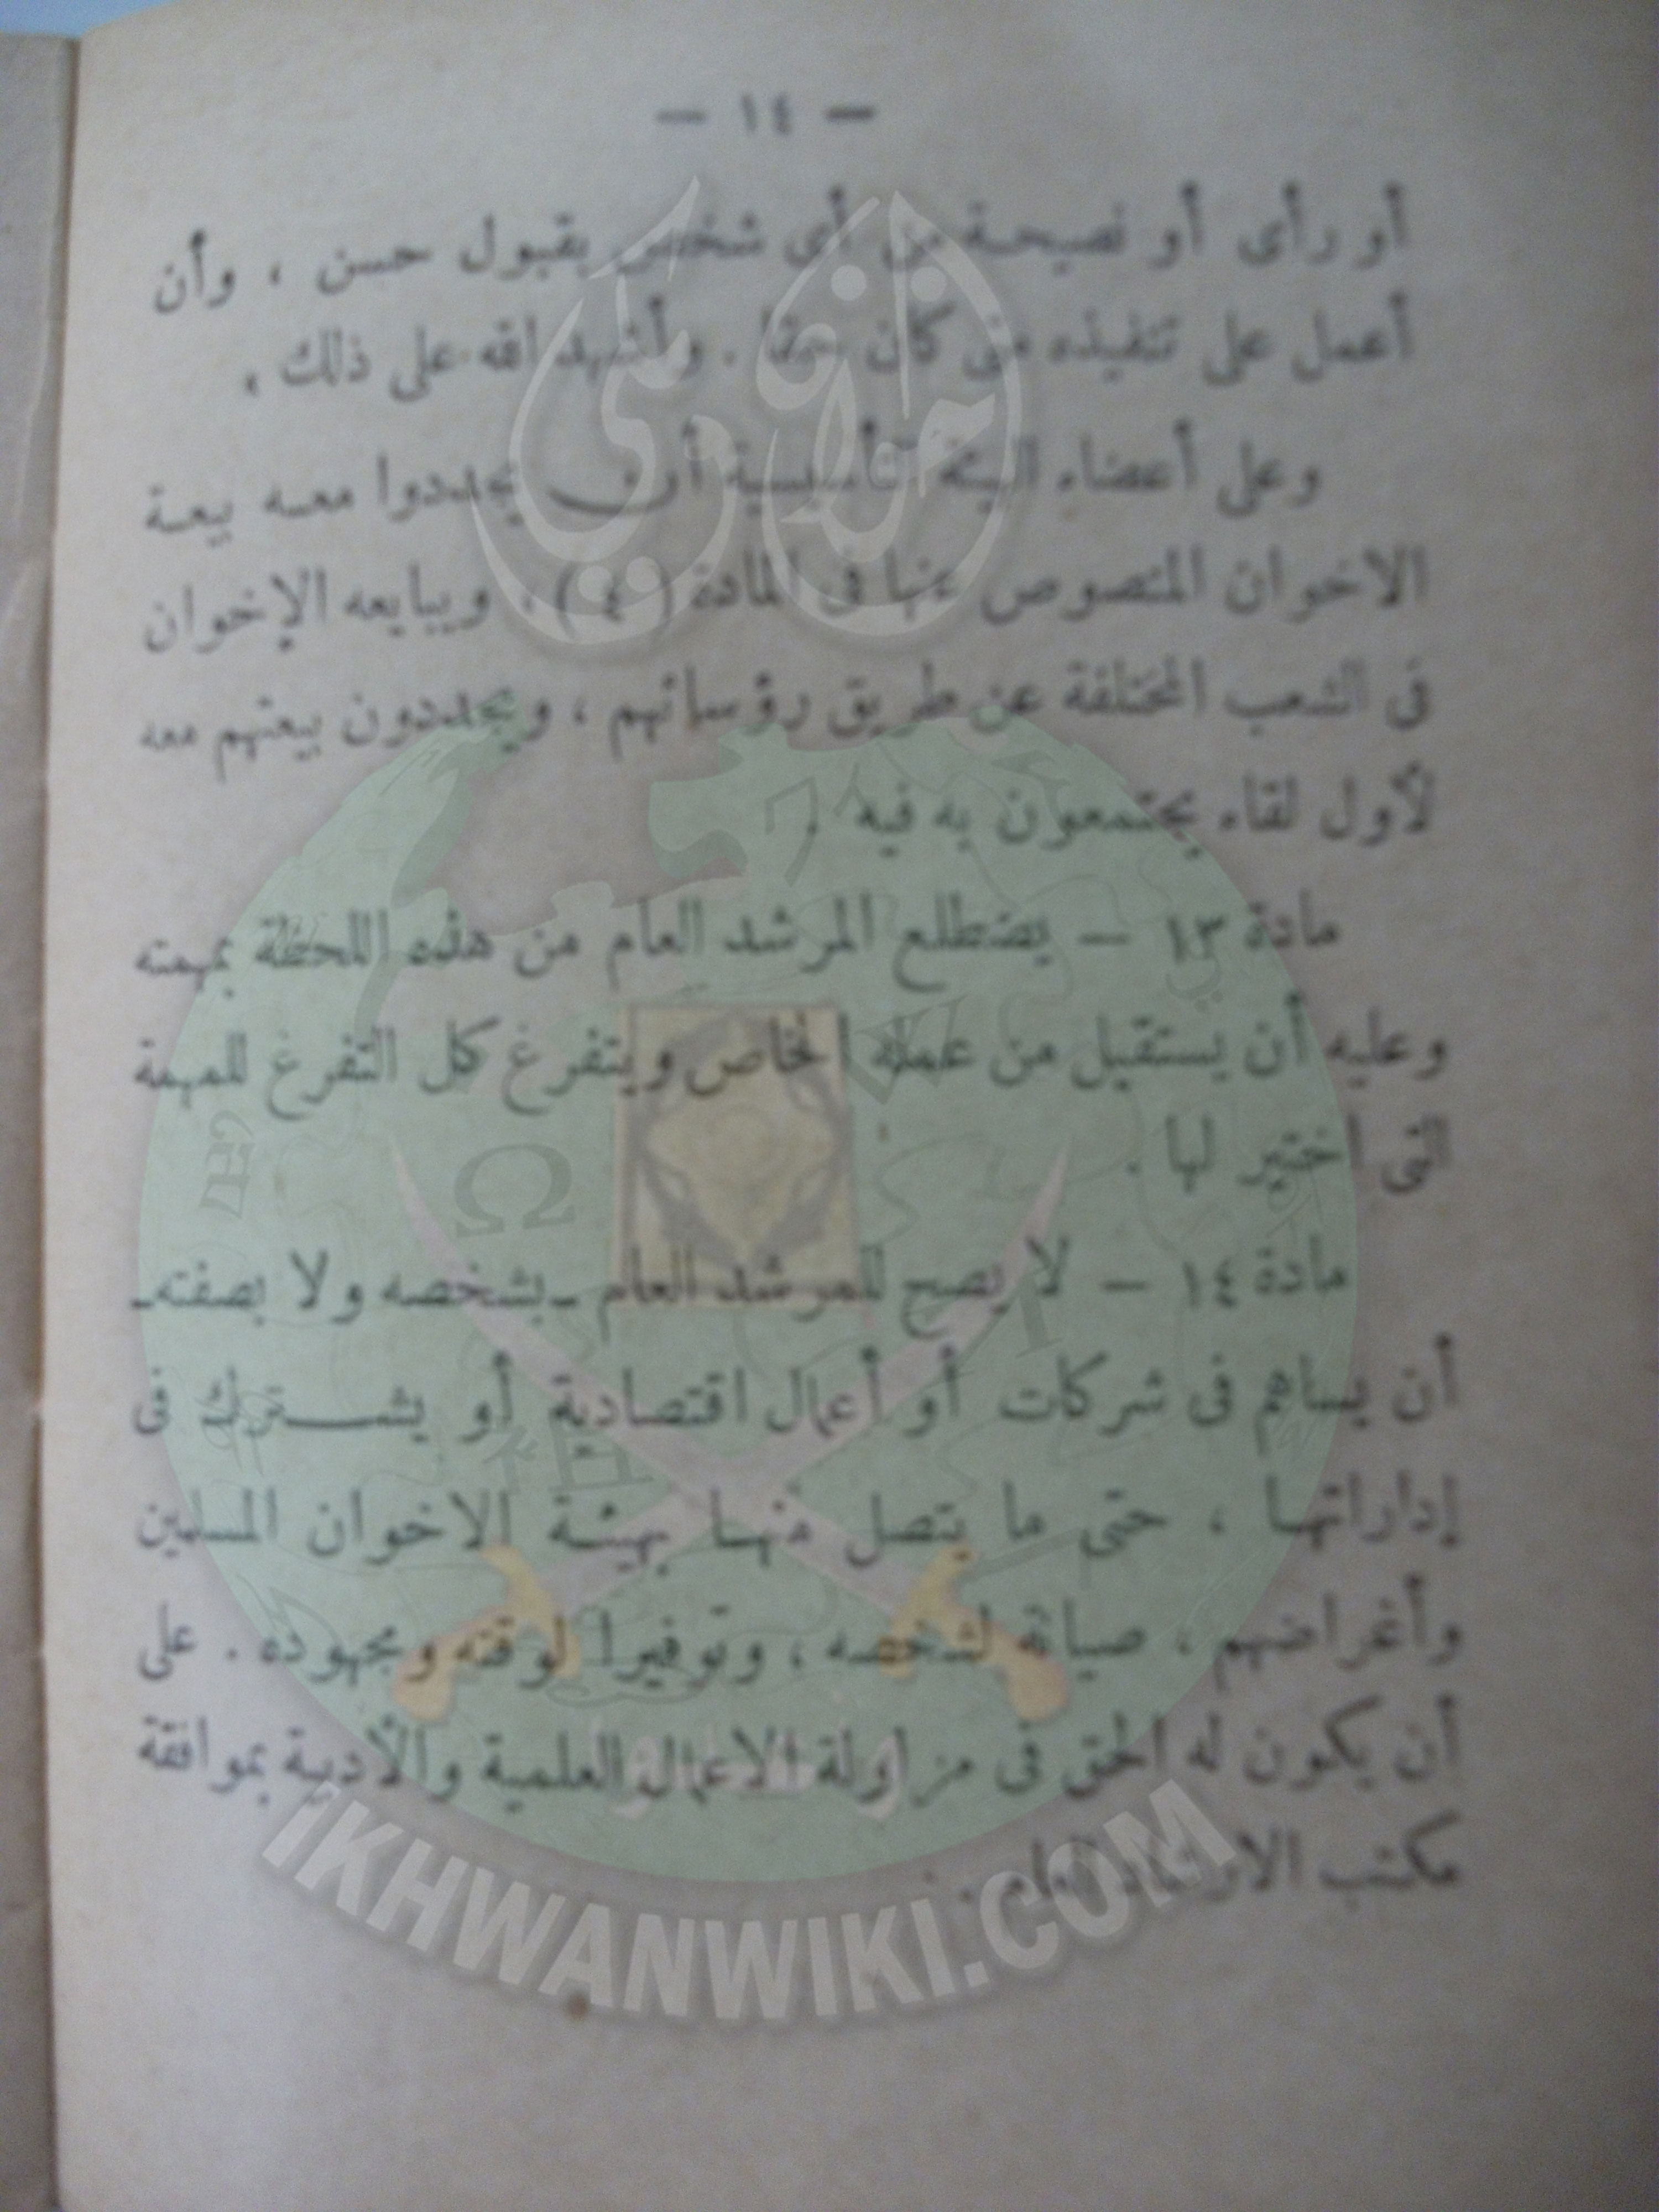 — ١٤ —
أو رأى أو نصيحة من أى شخص بقبول حسن ، وأن
أعمل على تنفيذه متى كان حقا . وأشهد الله على ذلك ،
وعلى أعضاء الهيئة التأسيسية أن يجددوا معه بيعة
الاخوان المنصوص عنها فى المادة ( ٤ ) ، ويبايعه الإخوان
فى الشعب المختلفة عن طريق رؤسائهم ، ويجددون بيعتهم معه
لأول لقاء يجتمعون به فيه .
مادة ١٣ — يضطلع المرشد العام من هذه اللحظة بمهمته
وعليه أن يستقيل من عمله الخاص ويتفرغ كل التفرغ للمهمة
التى اختير لها .
مادة ١٤ — لا يصح للمرشد العام ـ بشخصه ولا بصفته ـ
أن يساهم فى شركات أو أعمال اقتصادية أو يشترك فى
إداراتها ، حتى ما يتصل منها بهيئة الاخوان المسلمين
وأغراضهم ، صيانة لشخصه ، وتوفيرا لوقته ومجهوده . على
أن يكون له الحق فى مزاولة الاعمال العلمية والأدبية بموافقة
مكتب الارشاد العام .
IKHWANWIKI.COM